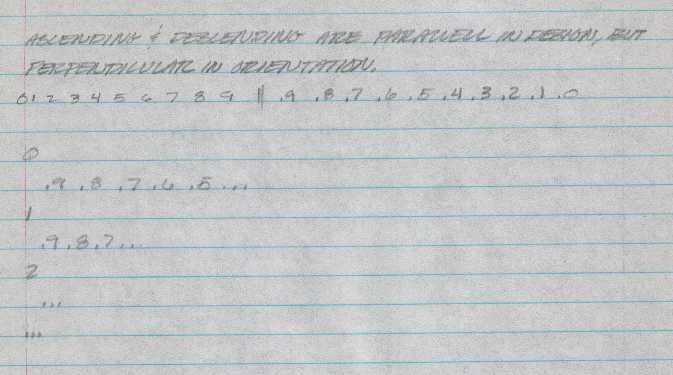 ASCENDING & DESCENDING ARE PARALLELL IN DESIGN, BUT
PERPENDICULAR IN ORIENTATION.
0 1 2 3 4 5 6 7 8 9 || .9 .8 .7 .6 .5 .4 .3 .2 .1 .0
0
.9 .8 .7 .6 .5 ...
1
.9 .8 .7 ...
2
...
...